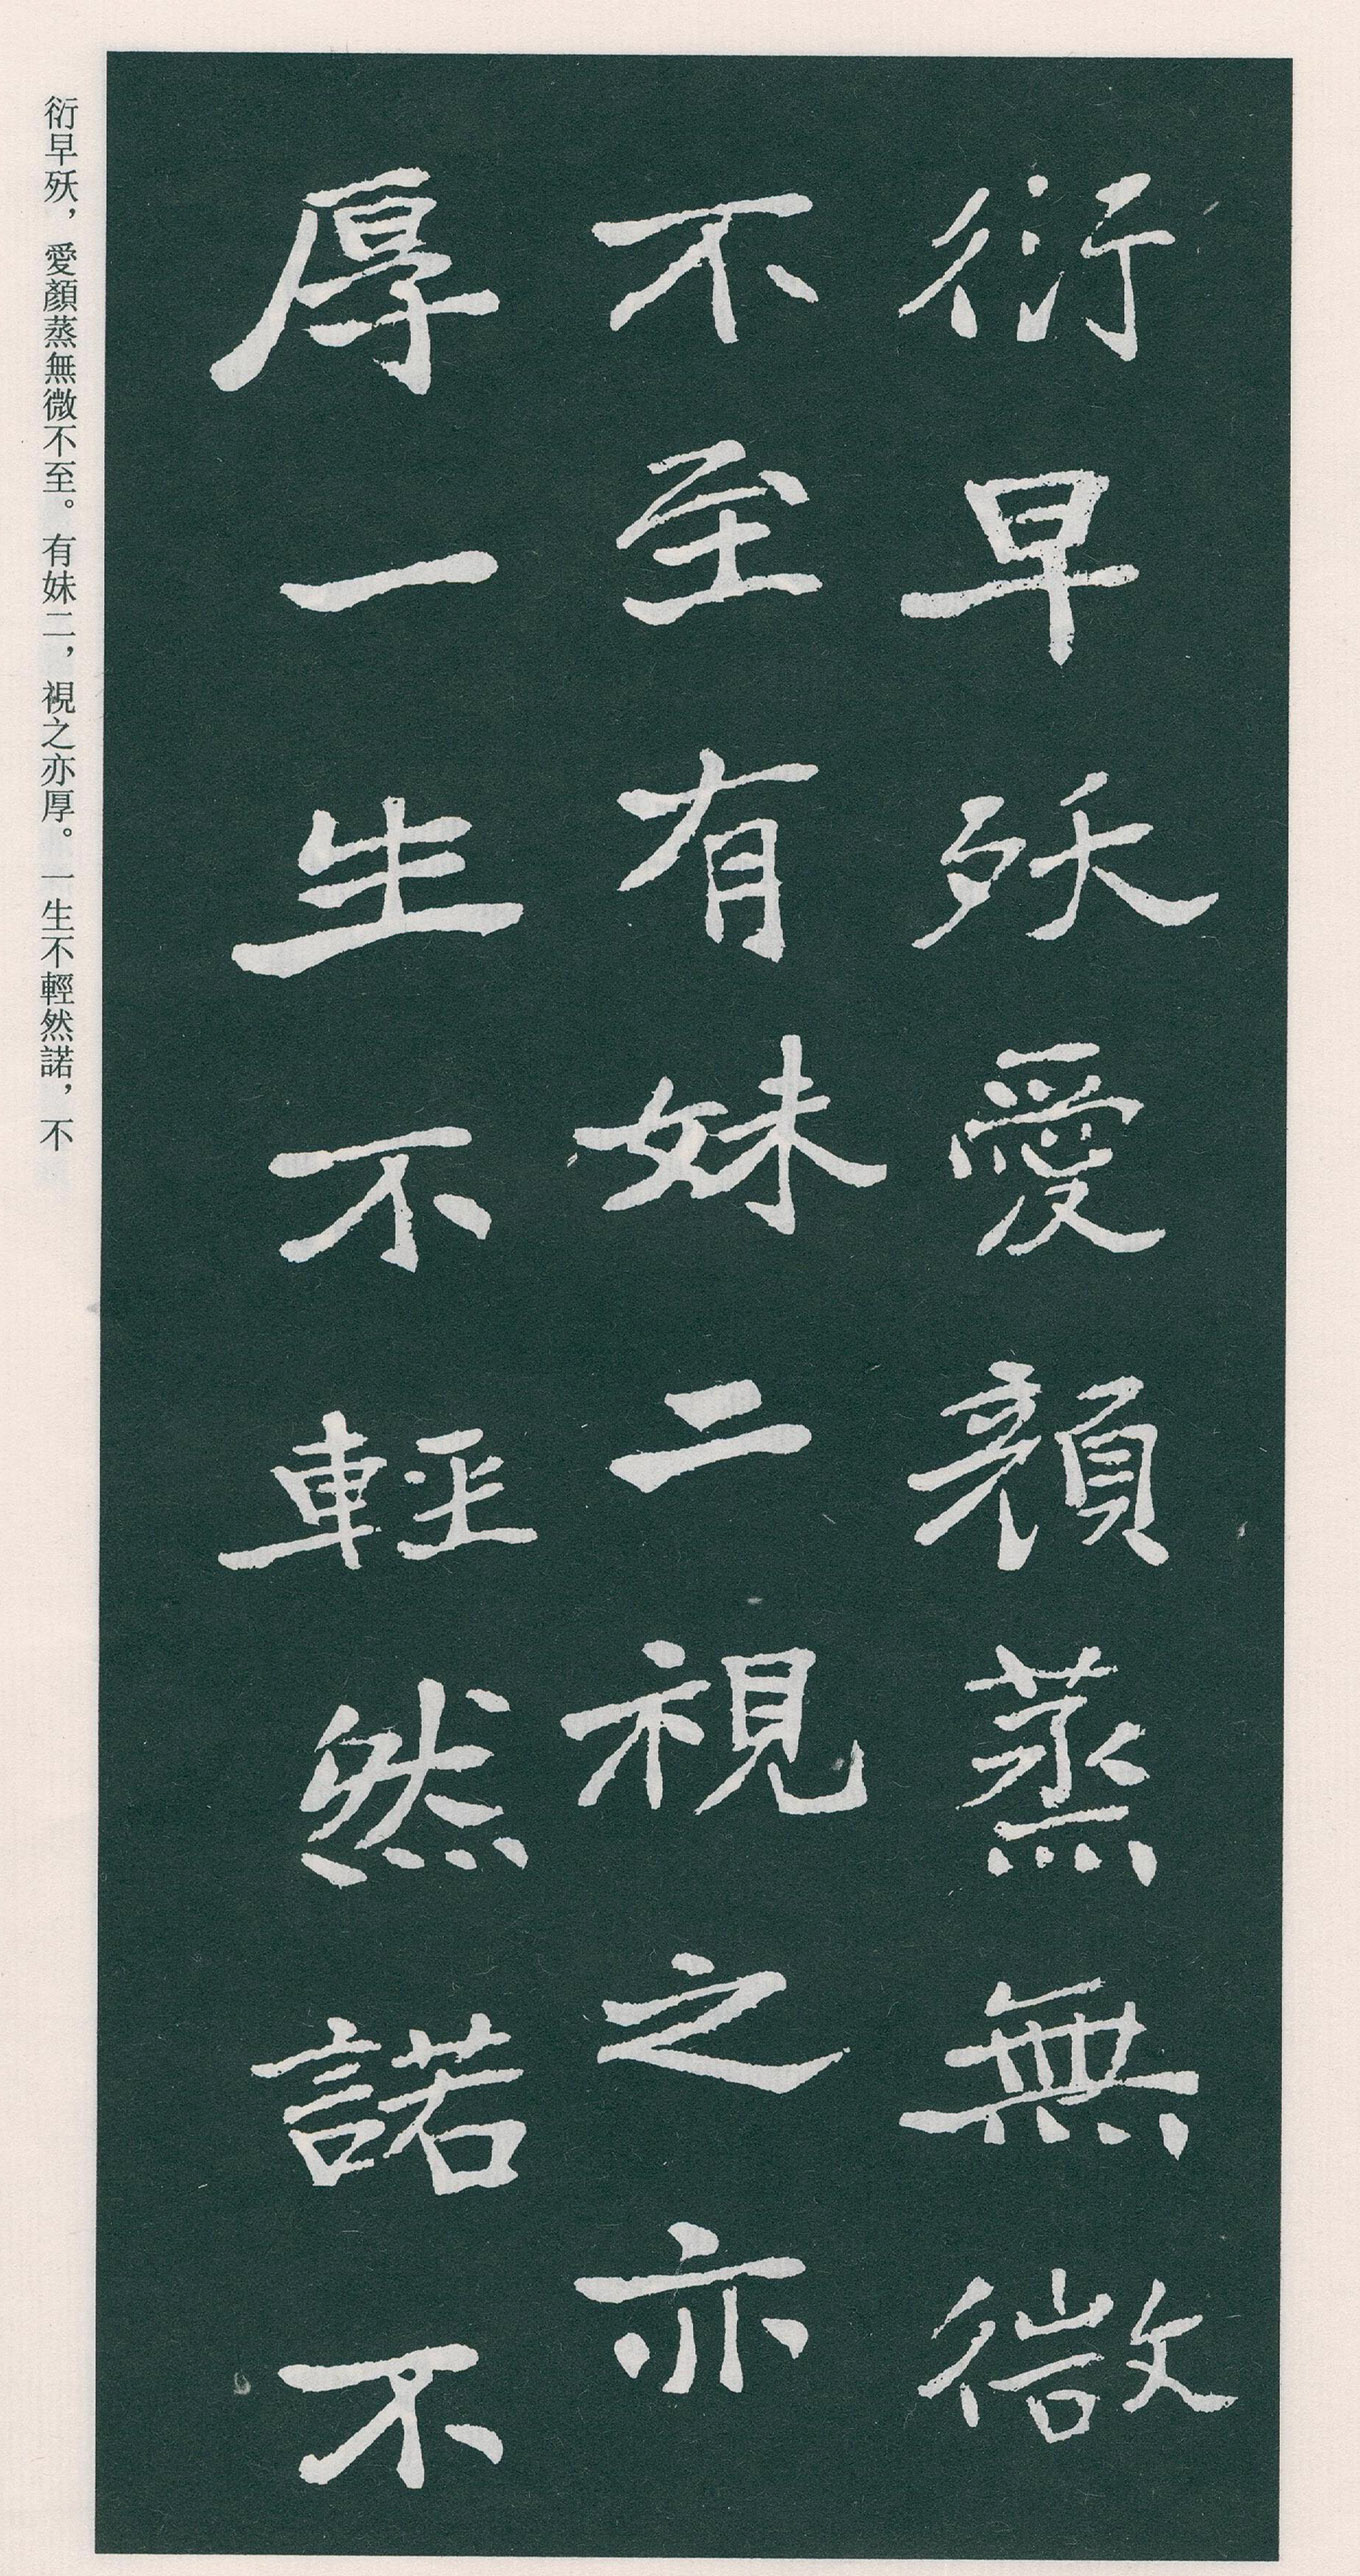 衍早殀愛顏蒸無微
不至有妹二視之亦
厚一生不輕然諾不
衍早殀，愛顏蒸無微不至。有妹二，視之亦厚。一生不輕然諾，不